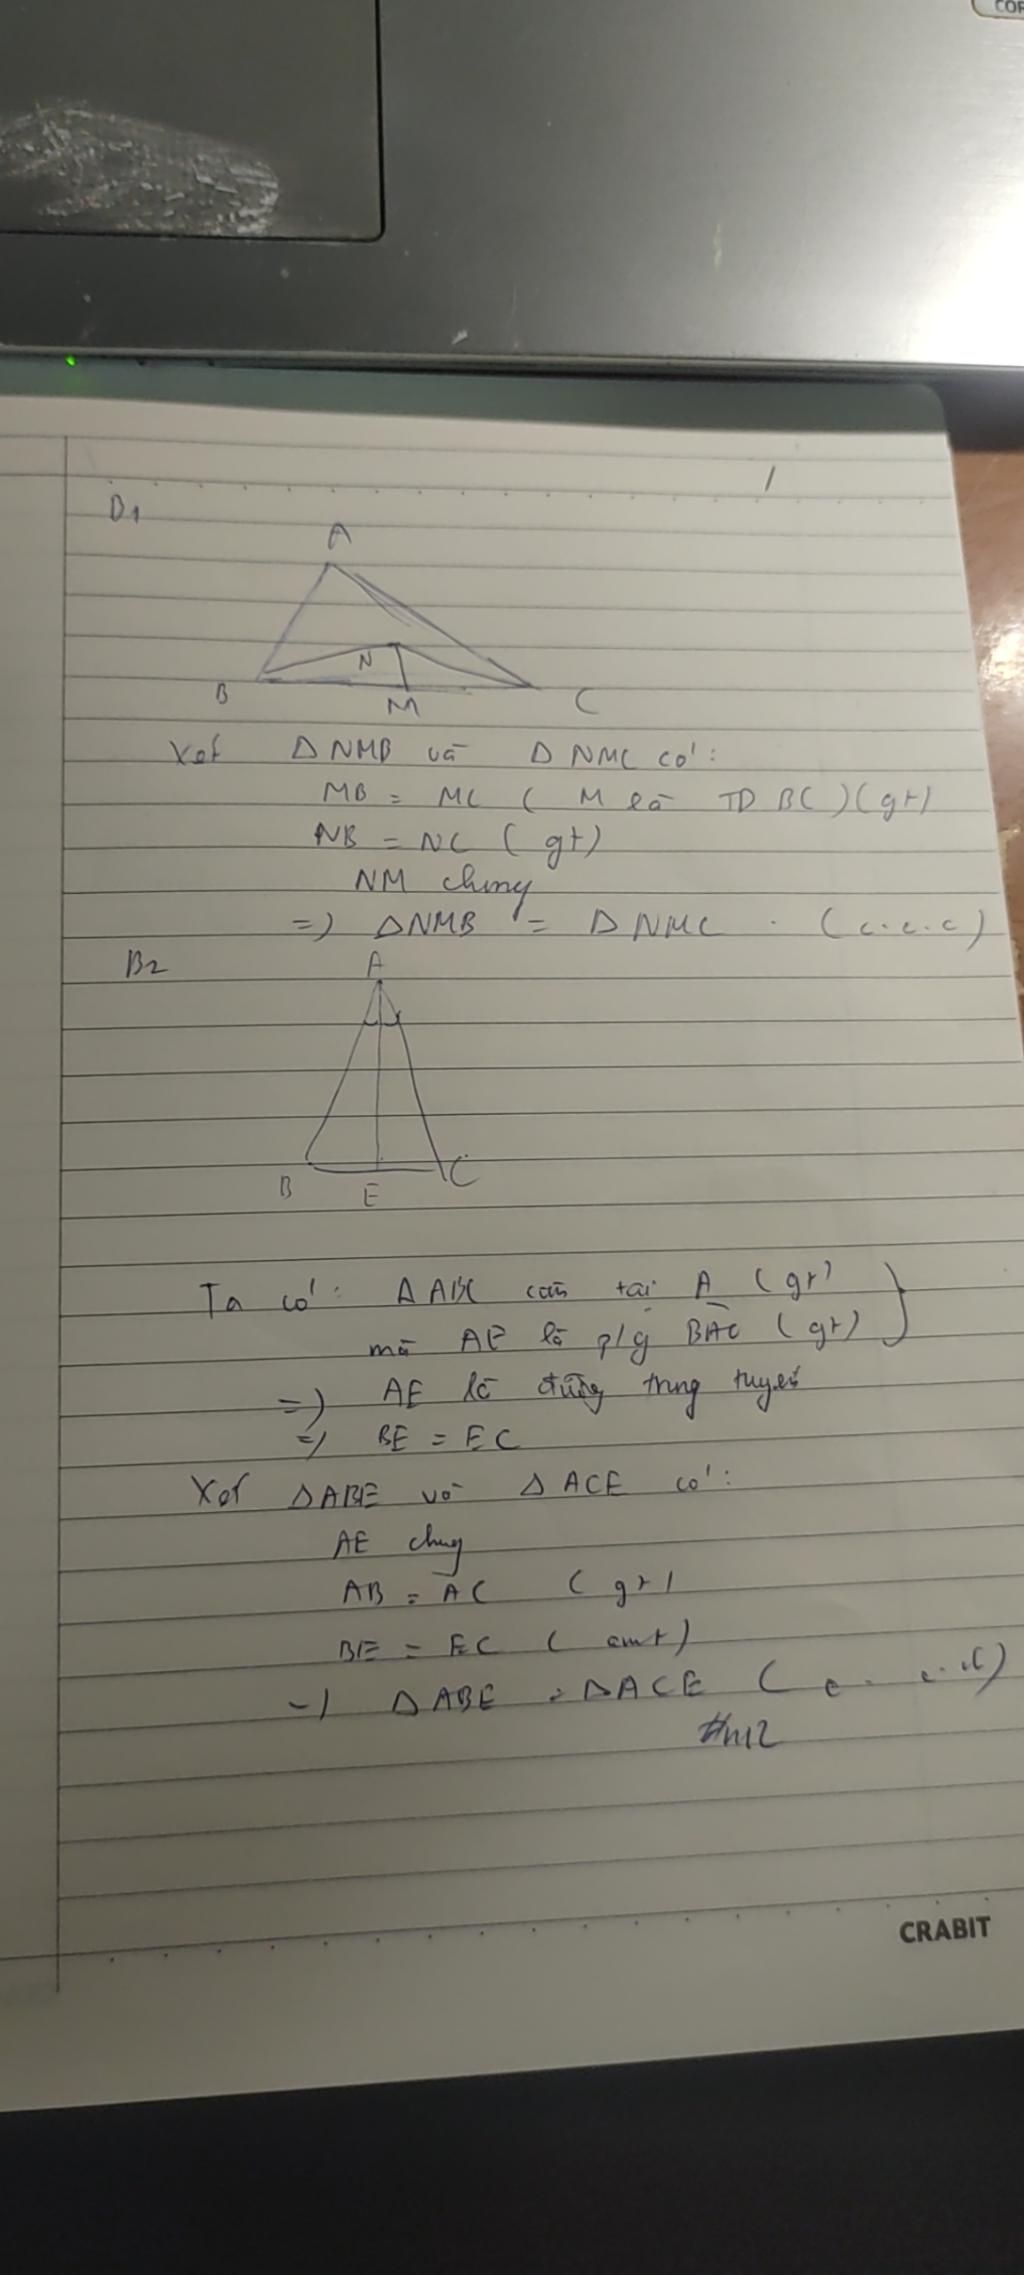 B1
A
N
B
M
C
Xét ΔNMB và ΔNMC có:
MB = MC ( M là TD BC) (gt)
NB = NC (gt)
NM chung
=) ΔNMB = ΔNMC . (c.c.c)
B2
A
B
E
C
Ta có: ΔABC cân tại A (gt)
mà AE là p/g BAC (gt)
=) AE là đường trung tuyến
=) BE = EC
Xét ΔABE và ΔACE có:
AE chung
AB = AC (gt)
BE = EC (cmt)
=) ΔABE = ΔACE (c.c.c)
CRABIT